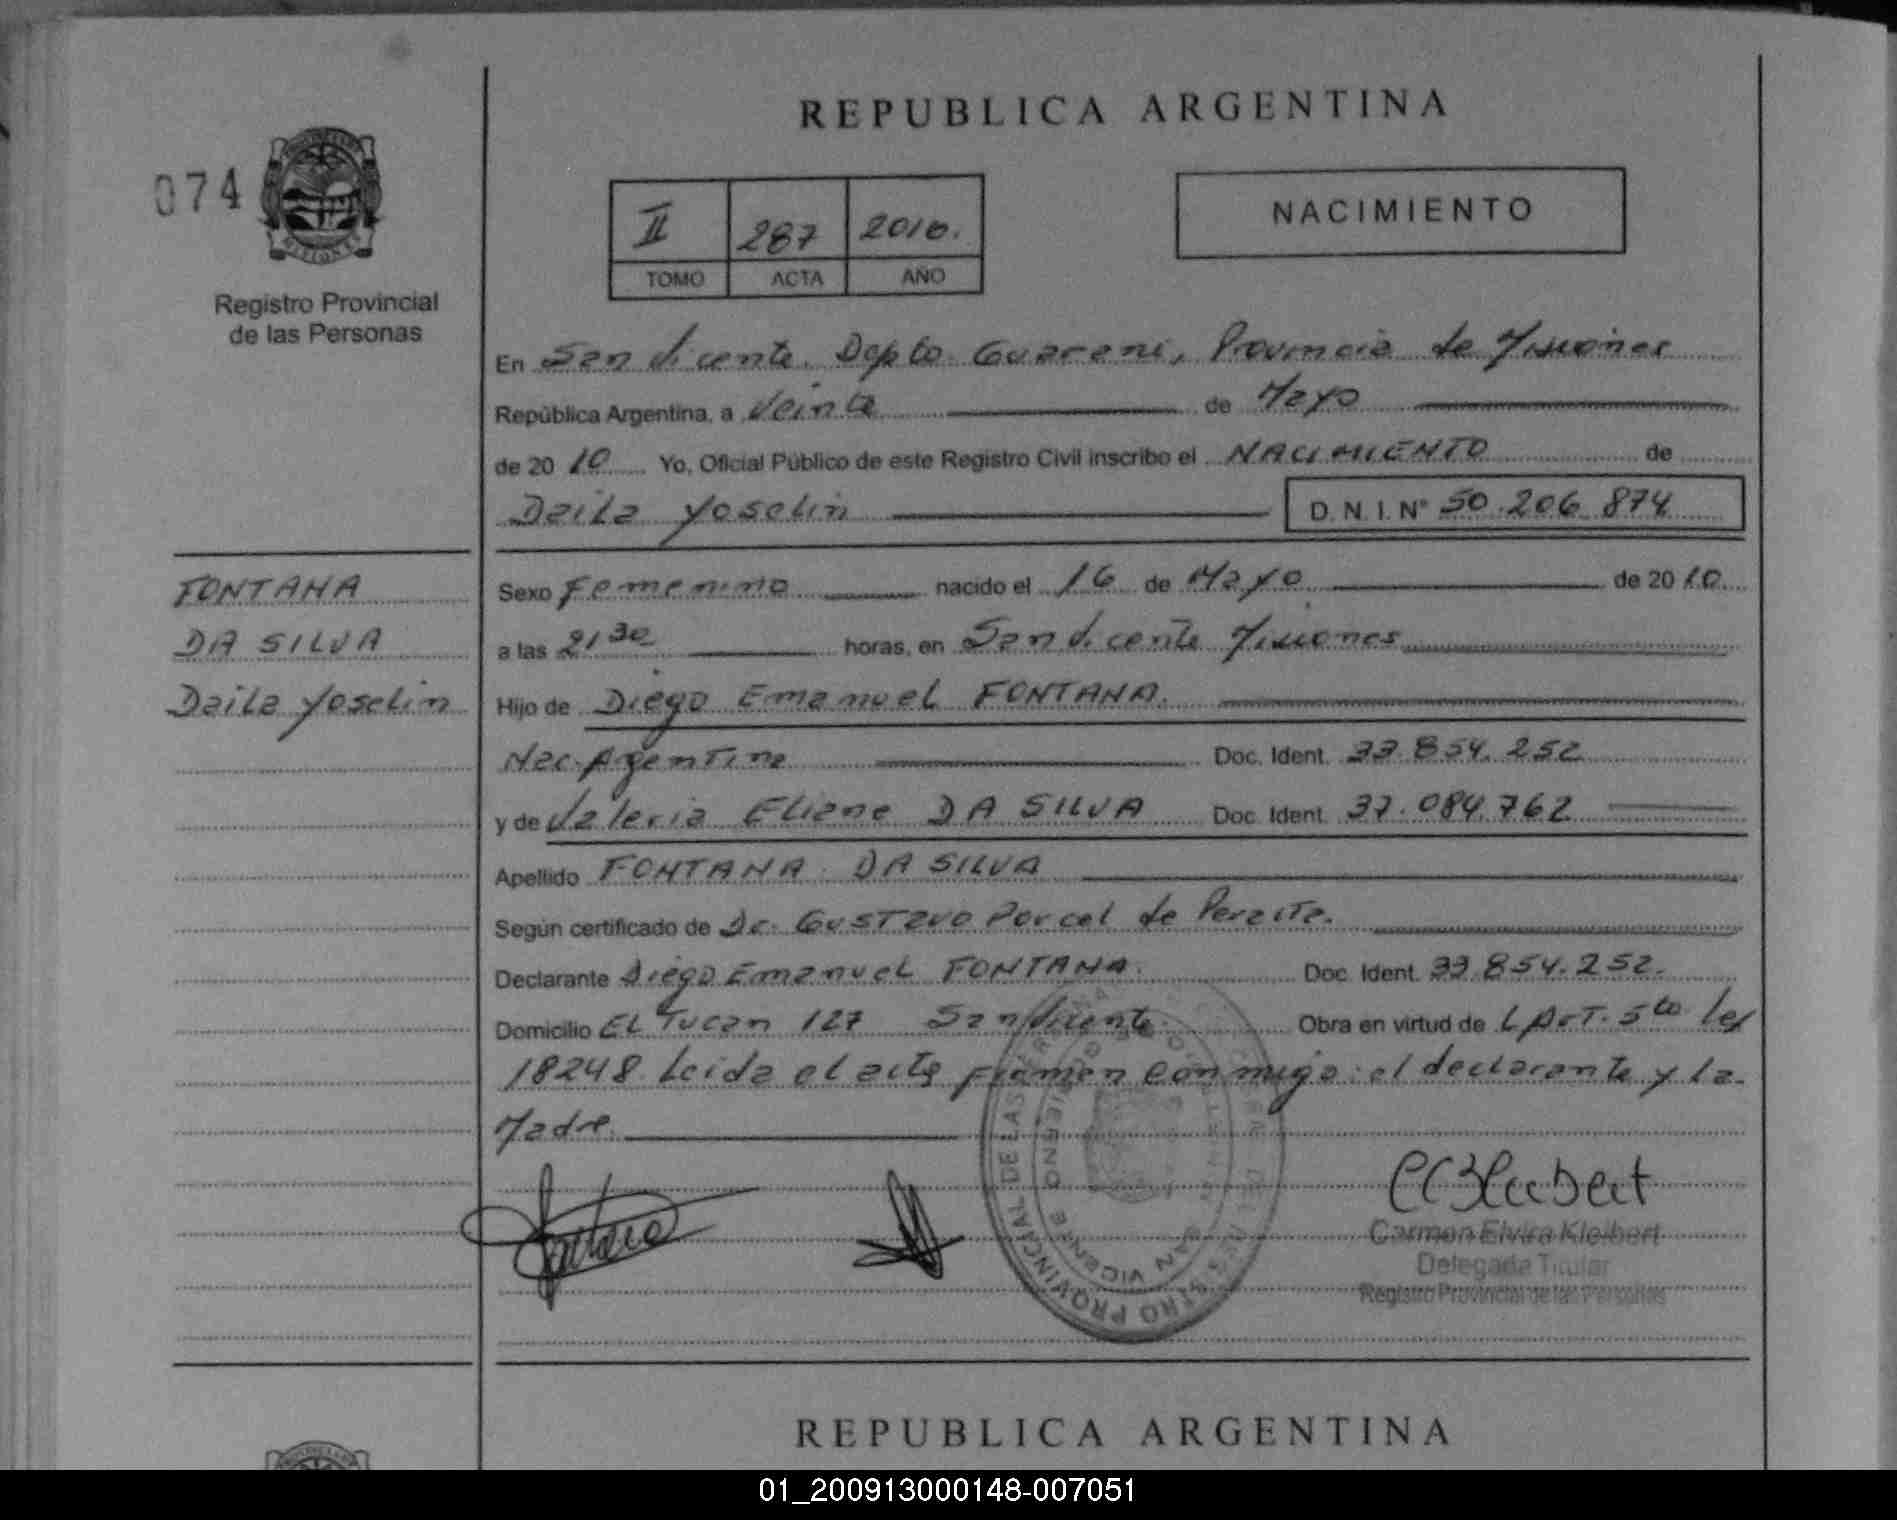 REPUBLICA ARGENTINA
074
II 287 2010.
TOMO ACTA AÑO
NACIMIENTO
Registro Provincial
de las Personas
En San Vicente. Depto Guarani, Provincia de Misiones
República Argentina, a Veinte de Mayo
de 20 10 Yo, Oficial Público de este Registro Civil inscribo el NACIMIENTO de
Daila Yoselin D. N. I. N° 50.206.874
FONTANA
DA SILVA
Daila Yoselin
Sexo Femenino nacido el 16 de Mayo de 20 10
a las 21 30 horas, en San Vicente Misiones
Hijo de Diego Emanuel FONTANA.
Nac. Argentina Doc. Ident. 33.854.252
y de Valeria Eliane DA SILVA Doc. Ident. 37.084.762
Apellido FONTANA DA SILVA
Según certificado de Dr. Gustavo Porcel de Peralta.
Declarante Diego Emanuel FONTANA. Doc. Ident. 33.854.252.
Domicilio EL Tucan 127 San Vicente. Obra en virtud de L Art. 5to Ley
18248. Leida el acta firman conmigo: el declarante y la
Madre.
REGISTRO PROVINCIAL DE LAS PERSONAS
SAN VICENTE
Carmen Elvira Kleibert
Delegada Titular
Registro Provincial de las Personas
REPUBLICA ARGENTINA
01_200913000148-007051